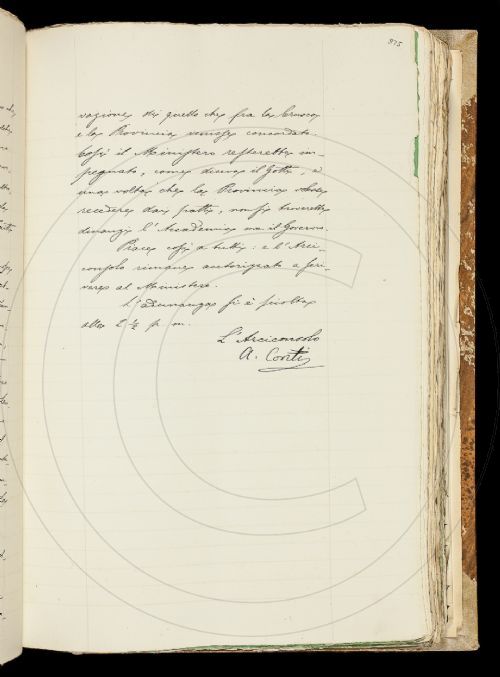 375
vazione di quello che fra la Crusca
e la Provincia venisse concordato.
Così il Ministero resterebbe im-
pegnato, come diceva il Gotti, e
una volta che la Provincia volesse
recedere dai patti, non si troverebbe
dinanzi l'Accademia ma il Governo.
Piace così a tutti: e l'Arci-
consolo rimane autorizzato a scri-
vere al Ministero.
L'adunanza si è sciolta
alle 2 ½ p. m.
L'Arciconsolo
A. Conti